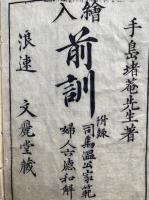 繪入
手島堵菴先生著
前訓
附録
司馬温公家範
婦人六德和解
浪速 文堂藏